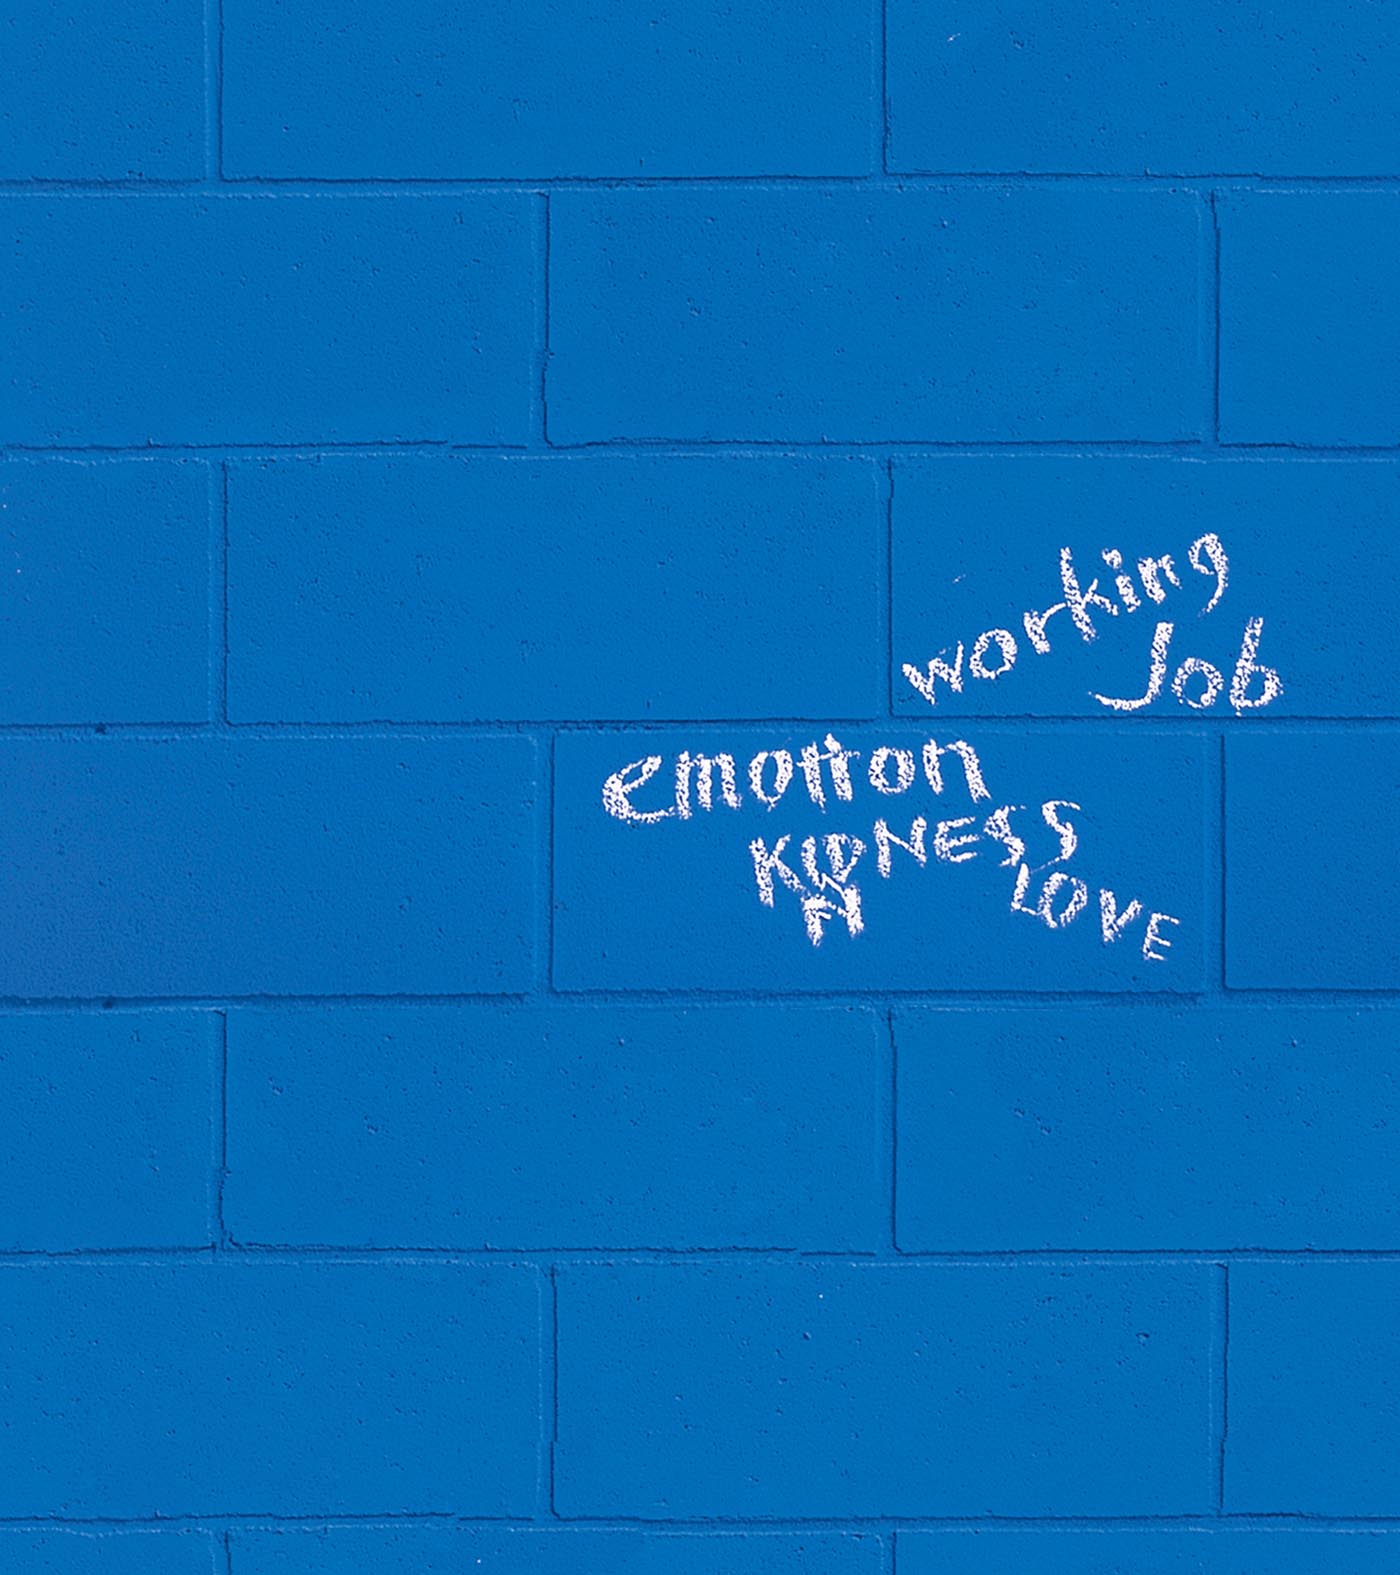 working
Job
emotion
KIDNESS
N
LOVE